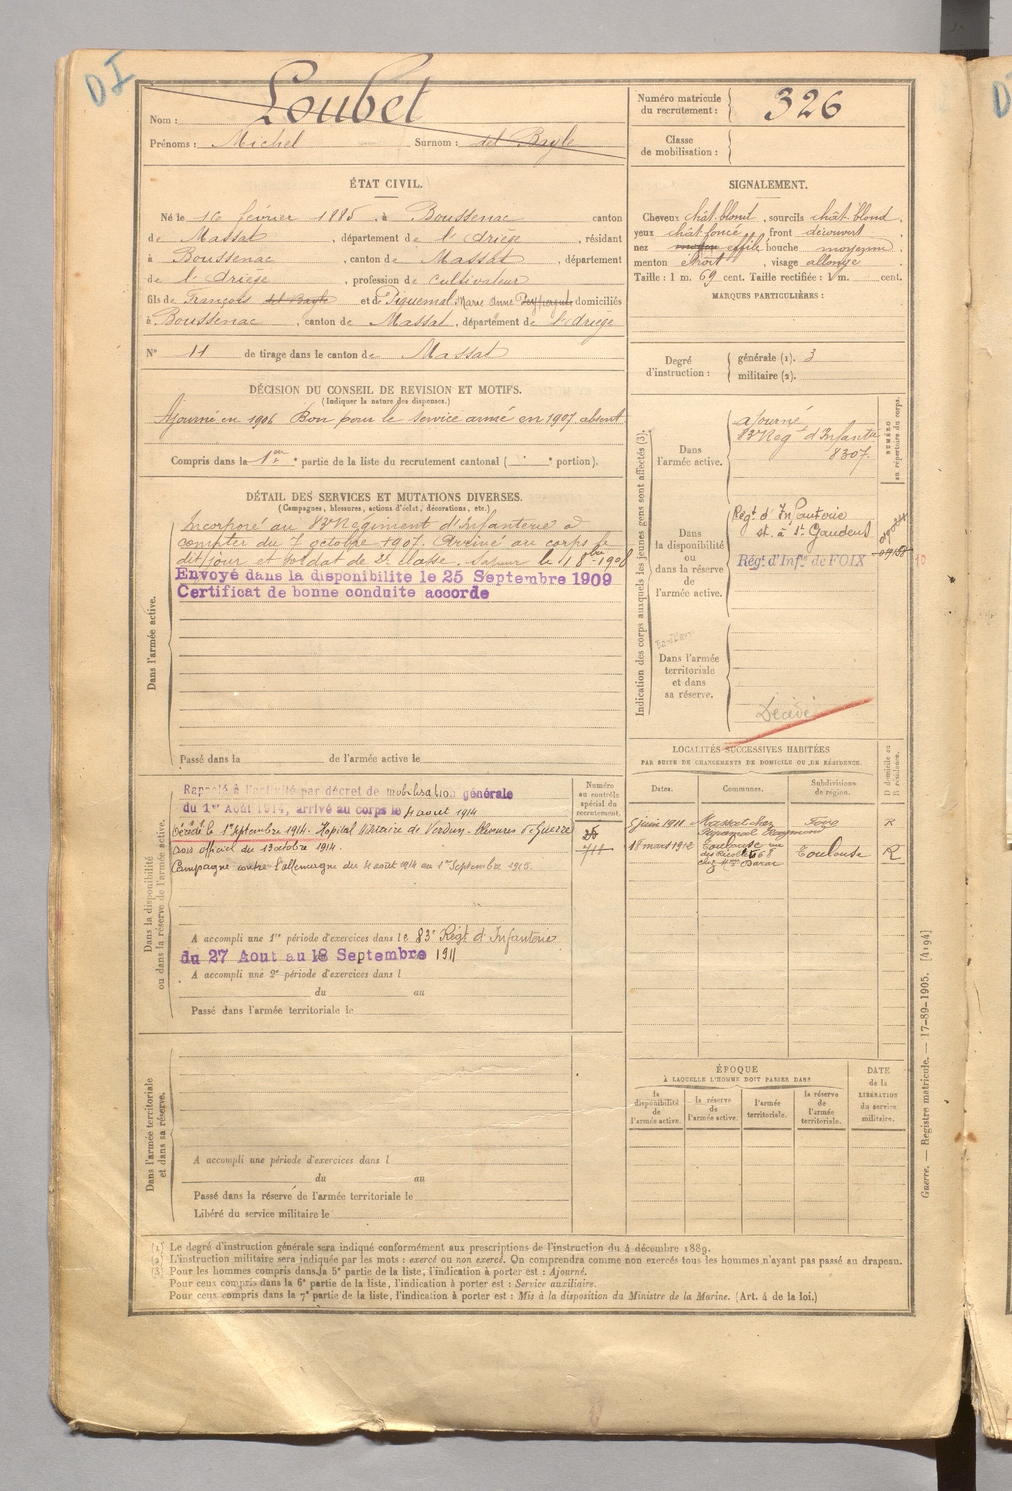 DI
Nom : Loubet
Prénoms : Michel Surnom : del Bayle
Numéro matricule du recrutement : 326
Classe de mobilisation :
ÉTAT CIVIL.
Né le 16 février 1885, à Boussenac canton
de Massat, département de l'Ariège, résidant
à Boussenac, canton de Massat, département
de l'Ariège, profession de cultivateur
fils de François del Bayle et de Piquemal Marie Anne domiciliés
à Boussenac, canton de Massat, département de l'Ariège
N° 11 de tirage dans le canton de Massat
SIGNALEMENT.
Cheveux chât. blond, sourcils chât. blond,
yeux chât foncé, front découvert,
nez moyen effilé bouche moyenne,
menton étroit, visage allongé
Taille : 1 m. 69 cent. Taille rectifiée : 1 m. cent.
MARQUES PARTICULIÈRES :
Degré d'instruction : générale (1). 3
militaire (2).
DÉCISION DU CONSEIL DE REVISION ET MOTIFS.
(Indiquer la nature des dispenses.)
Ajourné en 1906 Bon pour le service armé en 1907 absent
Compris dans la 1ère partie de la liste du recrutement cantonal ( e portion).
DÉTAIL DES SERVICES ET MUTATIONS DIVERSES.
(Campagnes, blessures, actions d'éclat, décorations, etc.)
Dans l'armée active.
Incorporé au 83e Régiment d'Infanterie à
compter du 7 octobre 1907. Arrivé au corps le
dit jour et soldat de 2e classe. Sapeur le 18bre 1908
Envoyé dans la disponibilite le 25 Septembre 1909
Certificat de bonne conduite accorde
Passé dans la de l'armée active le
Indication des corps auxquels les jeunes gens sont affectés (3).
Dans l'armée active.
ajourné
83e Régt d'Infanterie
8307
NUMÉRO au répertoire du corps.
Dans la disponibilité ou dans la réserve de l'armée active.
Régt d'Infanterie
st. à St Gaudens
Régt d'Infie de FOIX
10
Dans l'armée territoriale et dans sa réserve.
Décédé
Dans la disponibilité ou dans la réserve de l'armée active.
Rappelé à l'activité par décret de mobilisation générale
du 1er Août 1914, arrivé au corps le 4 aout 1914
Décédé le 1er septembre 1914. Hôpital Militaire de Verdun. Blessures de Guerre
avis officiel du 13 octobre 1914.
Campagne contre l'allemagne du 4 août 1914 au 1er Septembre 1915.
A accompli une 1re période d'exercices dans le 83e Régt d'Infanterie
du 27 Aout au 18 Septembre 1911
A accompli une 2e période d'exercices dans l
du au
Passé dans l'armée territoriale le
Numéro au contrôle spécial du recrutement.
711
LOCALITÉS SUCCESSIVES HABITÉES
PAR SUITE DE CHANGEMENTS DE DOMICILE OU DE RÉSIDENCE.
Dates. Communes. Subdivisions de région. D domicile ou R résidence.
5 juin 1911 Massat chez Piquemal Raymond Foix R
18 mars 1912 Toulouse rue des Récollets 68 chez Mme Barar Toulouse R
ÉPOQUE
À LAQUELLE L'HOMME DOIT PASSER DANS
la disponibilité de l'armée active.
la réserve de l'armée active.
l'armée territoriale.
la réserve de l'armée territoriale.
DATE de la LIBÉRATION du service militaire.
Dans l'armée territoriale et dans sa réserve.
A accompli une période d'exercices dans l
du au
Passé dans la réserve de l'armée territoriale le
Libéré du service militaire le
Guerre. — Registre matricule. — 17-89-1905. [4194]
(1) Le degré d'instruction générale sera indiqué conformément aux prescriptions de l'instruction du 4 décembre 1889.
(2) L'instruction militaire sera indiquée par les mots : exercé ou non exercé. On comprendra comme non exercés tous les hommes n'ayant pas passé au drapeau.
(3) Pour les hommes compris dans la 5e partie de la liste, l'indication à porter est : Ajourné.
Pour ceux compris dans la 6e partie de la liste, l'indication à porter est : Service auxiliaire.
Pour ceux compris dans la 7e partie de la liste, l'indication à porter est : Mis à la disposition du Ministre de la Marine. (Art. 4 de la loi.)